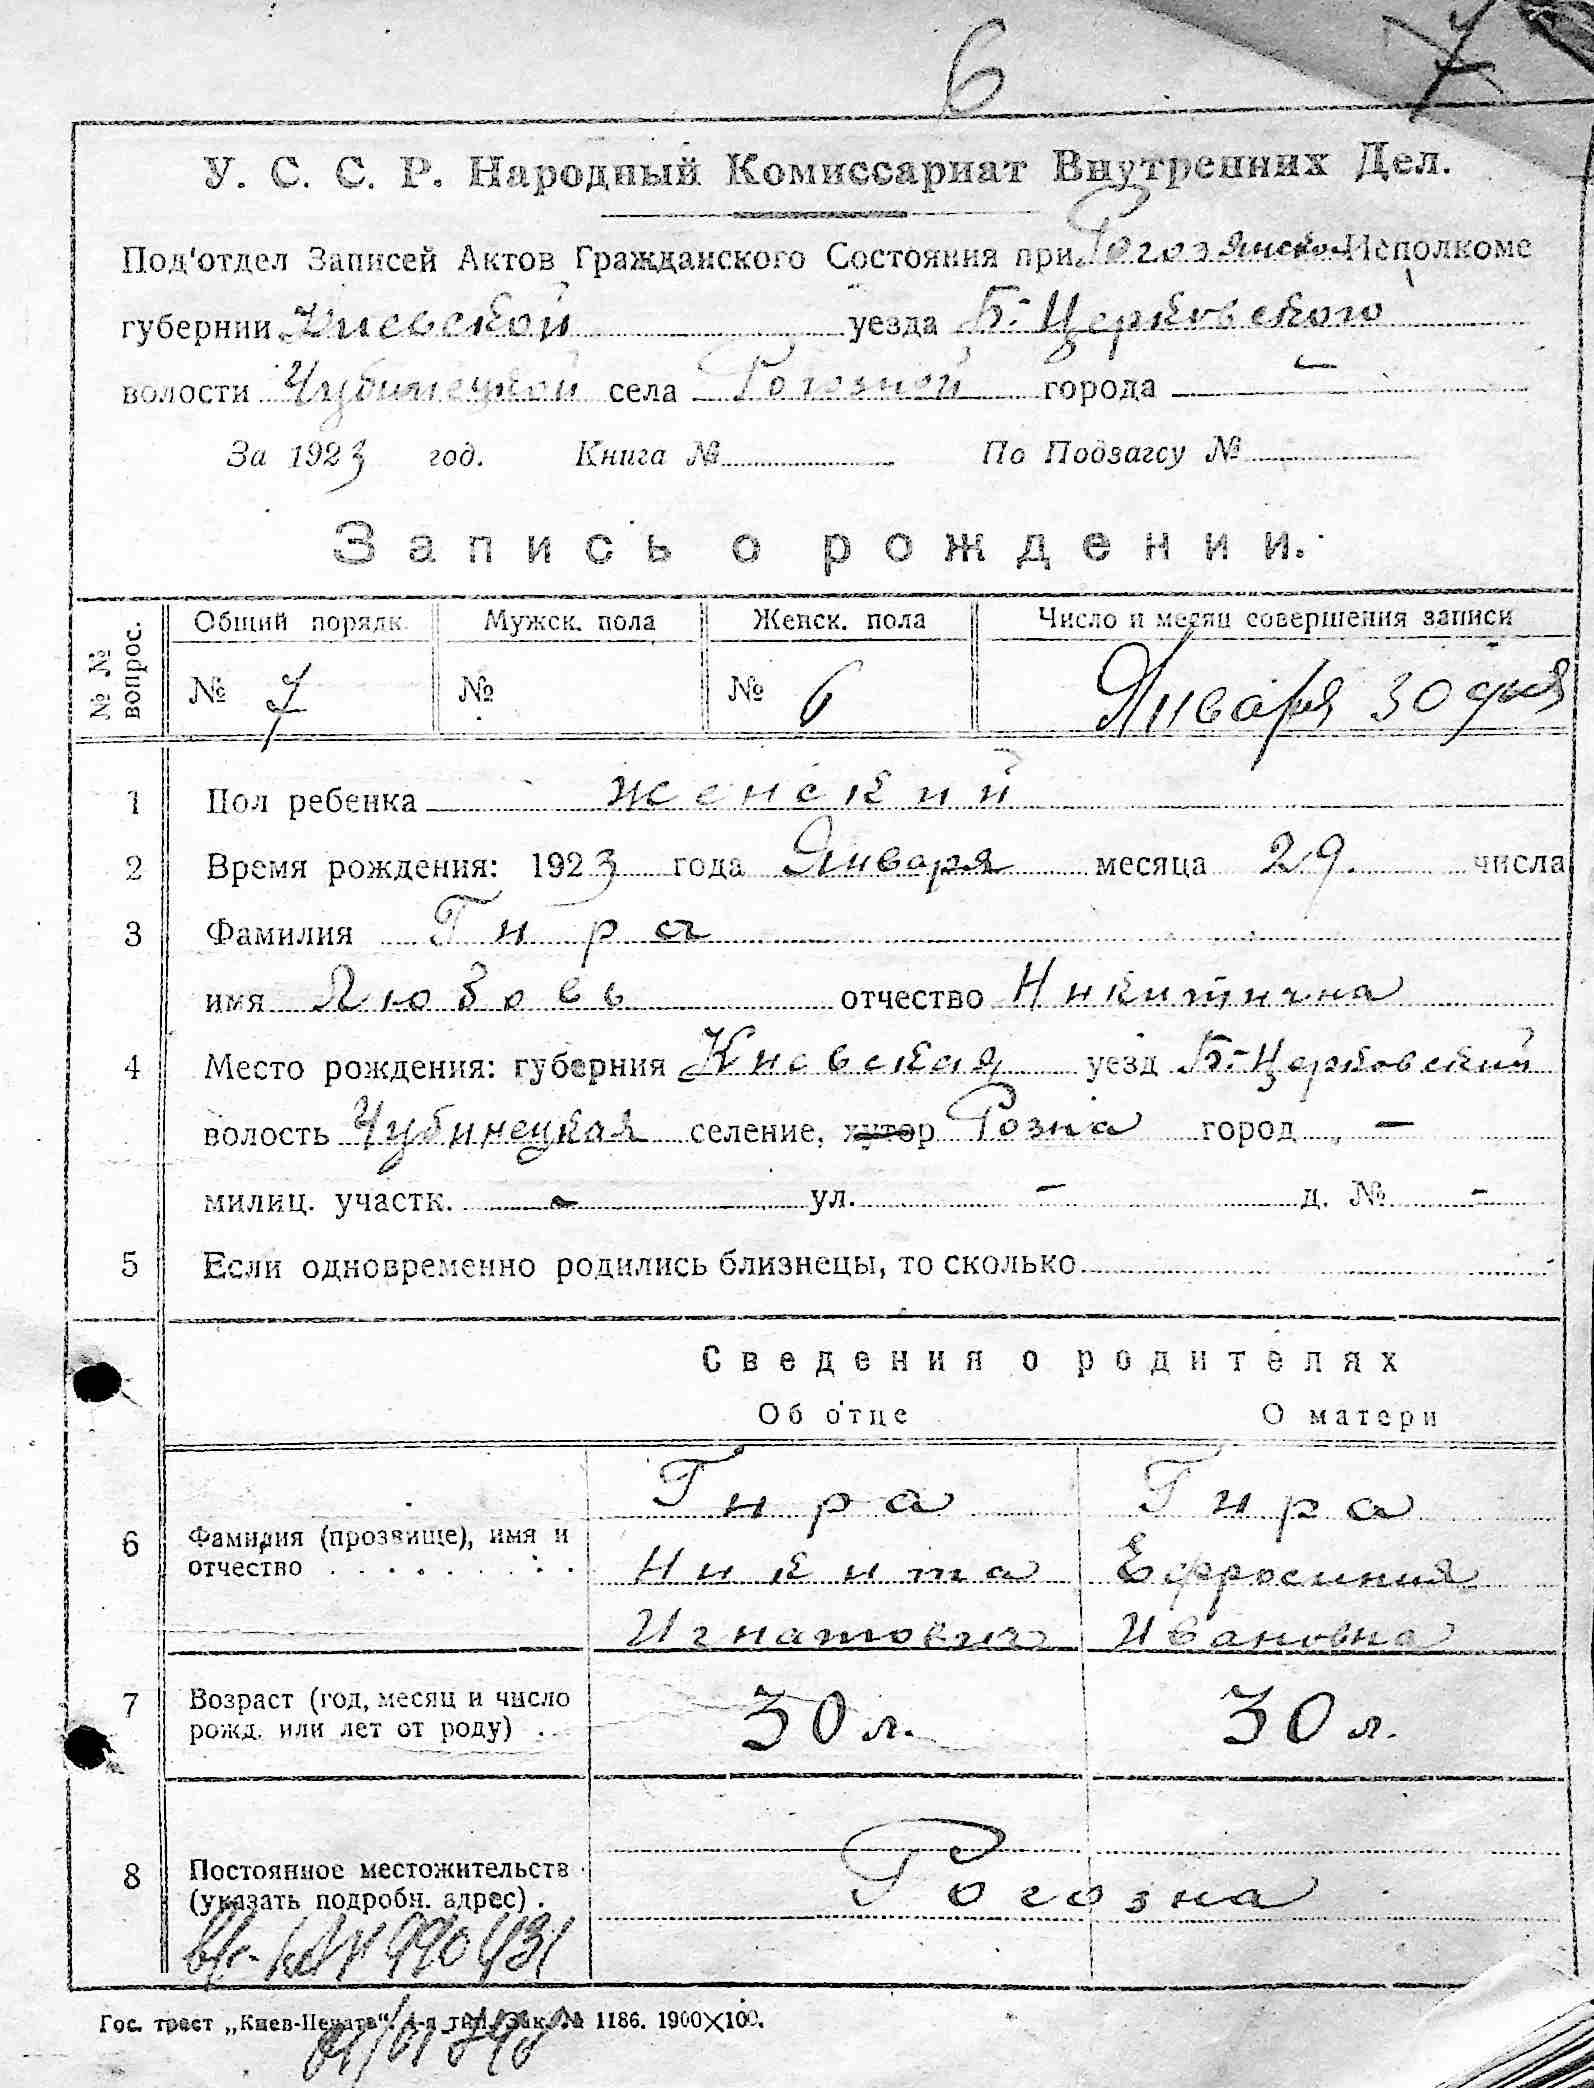 6 7
У. С. С. Р. Народный Комиссариат Внутренних Дел.
Под'отдел Записей Актов Гражданского Состояния при Рогозянском Исполкоме
губернии Киевской уезда Б.-Церковского
волости Чубинецкой села Рогозной города —
За 1923 год. Книга № По Подзагсу №
Запись о рождении.
№ № вопрос. Общий порядк. Мужск. пола Женск. пола Число и месяц совершения записи
№ 7 № № 6 Января 30 дня
1 Пол ребенка женский
2 Время рождения: 1923 года Января месяца 29. числа
3 Фамилия Гира
имя Любовь отчество Никитична
4 Место рождения: губерния Киевская уезд Б.-Церковский
волость Чубинецкая селение, хутор Розна город —
милиц. участк. — ул. — д. № -
5 Если одновременно родились близнецы, то сколько
Сведения о родителях
Об отце О матери
Гира Гира
6 Фамилия (прозвище), имя и Никита Ефросиния
отчество Игнатович Ивановна
7 Возраст (год, месяц и число 30 л. 30 л.
рожд. или лет от роду)
8 Постоянное местожительств Рогозна
(указать подробн. адрес).
Гос. трест „Киев-Печать“. 4-я тип. Зак. № 1186. 1900×100.